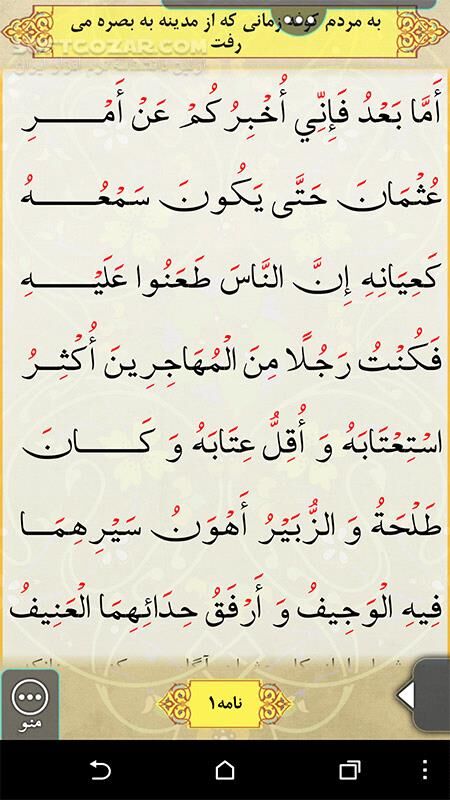 به مردم کوفه زمانی که از مدینه به بصره می
رفت
SOFTGOZAR.COM
أَمَّا بَعْدُ فَإِنِّي أُخْبِرُكُمْ عَنْ أَمْرِ
عُثْمَانَ حَتَّى يَكُونَ سَمْعُهُ
كَعِيَانِهِ إِنَّ النَّاسَ طَعَنُوا عَلَيْهِ
فَكُنْتُ رَجُلًا مِنَ الْمُهَاجِرِينَ أُكْثِرُ
اسْتِعْتَابَهُ وَ أُقِلُّ عِتَابَهُ وَ كَانَ
طَلْحَةُ وَ الزُّبَيْرُ أَهْوَنُ سَيْرِهِمَا
فِيهِ الْوَجِيفُ وَ أَرْفَقُ حِدَائِهِمَا الْعَنِيفُ
نامه۱
منو